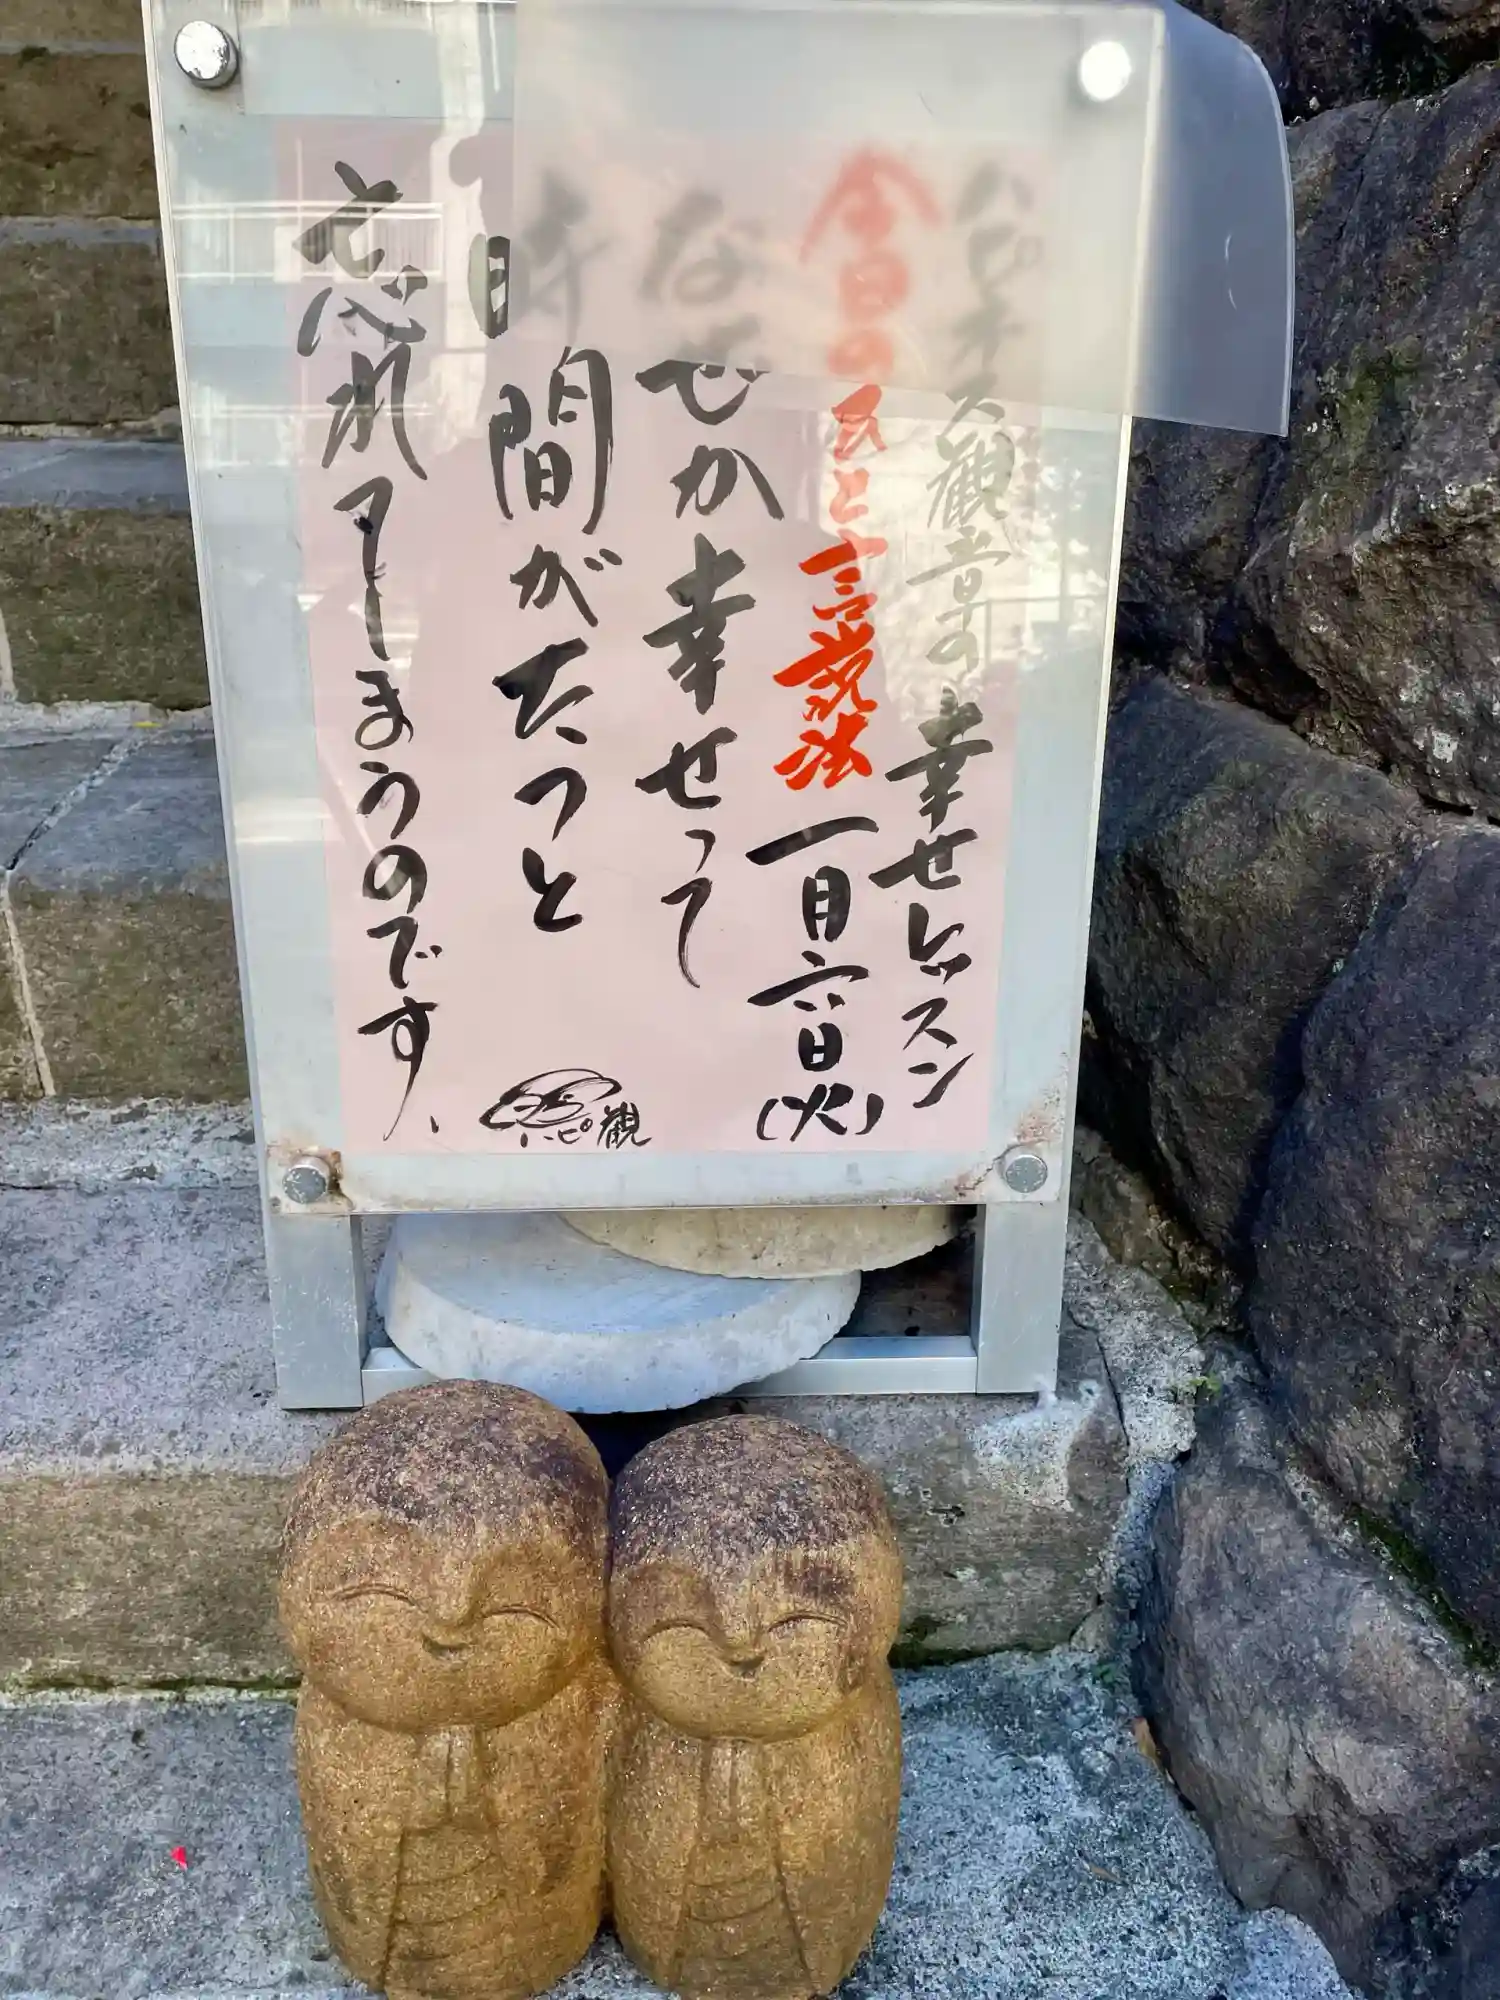 ハピネス観音の幸せレッスン
今日のひと言説法 一月六日(火)
なぜか幸せって
時間がたつと
忘れてしまうのです、
ハピ観